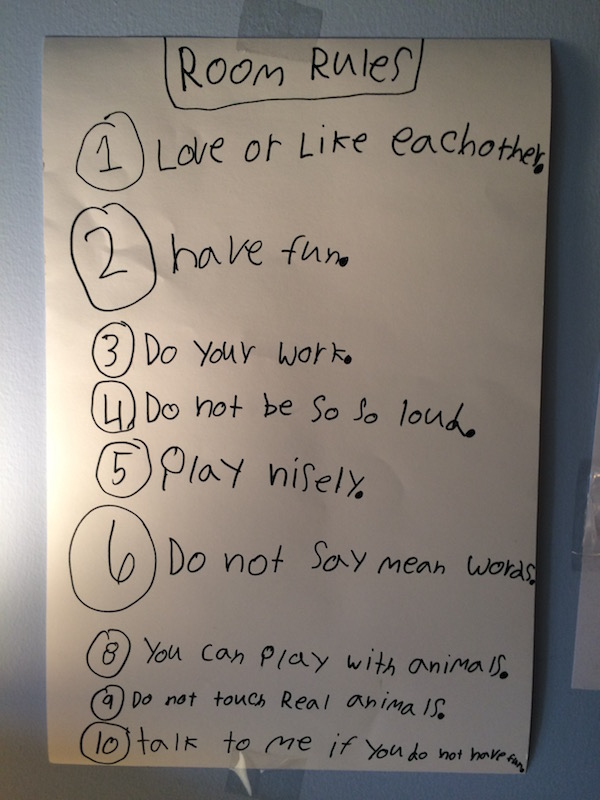 Room Rules
1 Love or Like eachother.
2 have fun.
3 Do your work.
4 Do not be so so loud.
5 Play nisely.
6 Do not say mean words.
8 You can play with animals.
9 Do not touch Real animals.
10 talk to me if you do not have fun.